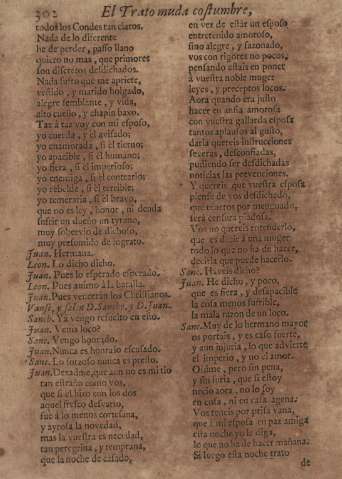 302 El Trato muda costumbre,
todos los Condes tan claros.
Nada de lo diferente
he de perder, passo llano
quiero no mas, que primores
son discretos desdichados.
Nada justo que me apriete,
vestido, y marido holgado,
alegre semblante, y vida,
alto cuello, y chapin baxo.
Taz à taz voy con mi esposo,
yo cuerda, y el avisado;
yo enamorada, si el tierno;
yo apacible, si el humano;
yo fiera, si el imperioso;
yo enemiga, si el contrario;
yo rebelde, si el terrible;
yo temeraria, si el bravo,
que no es ley, honor, ni deuda
sufrir un dueño un tyrano,
muy sobervio de dichoso,
muy presumido de ingrato.
Juan. Hermana.
Leon. Lo dicho dicho.
Juan. Pues lo esperado esperado.
Leon. Pues animo al batalla.
Juan. Pues venceràn los Christianos.
Vanse, y salen D. Sancho, y D. Juan.
Sanc. Ya vengo resuelto en esto.
Juan. Venis loco?
Sanc. Vengo honrado.
Juan. Nunca es honrado escusado.
Sanc. Lo forzoso nunca es presto.
Juan. Dexadme, que aun no es mi tio
tan estraño como vos,
que si el hizo con los dos
aquel fresco desvario,
fue à lo menos cortesana,
y ayrosa la novedad,
mas la vuestra es necedad,
tan peregrina, y temprana,
que la noche de casado,
en vez de estar un esposo
entretenido amoroso,
sino alegre, y sazonado,
vos con rigores no pocos,
pensando estais en poner
à vuestra noble muger
leyes, y preceptos locos.
Aora quando era justo
hacer en ansia amorosa
con vuestra gallarda esposa
tantos aplausos al gusto,
darla quereis instrucciones
severas, desconfiadas,
pudiendo ser desdichadas
noticias las prevenciones.
Y quereis que vuestra esposa
piense de vos desdichado,
que zeratos por averiguado,
serà censura piadosa.
Vos no quereis entenderlo,
que es decir à una muger
todo lo que no ha de hacer,
decirla que puede hacerlo.
Sanc. Haveis dicho?
Juan. He dicho, y poco,
que es fiera, y desapacible
la cosa menos sufrible,
la mala razon de un loco.
Sanc. Muy de lo hermano mayor
os portais, y es caso fuerte,
y aun injusta, lo que advierte
el imperio, y no el amor.
Oidme, pero sin pena,
y sin furia, que si estoy
necio aora, no lo soy
en casa, ni en casa agena.
Vos teneis por prisa vana,
que à mi esposa en paz amiga
esta noche yo le diga,
lo que no ha de hacer mañana.
Si luego esta noche trato
de